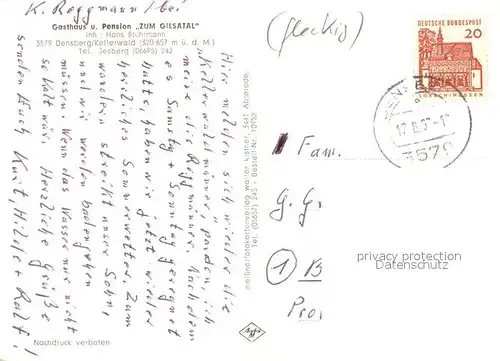 K. Roggmann / bei
Gasthaus u. Pension „ZUM GILSATAL"
Inh.: Hans Stuhrmann
3579 Densberg/Kellerwald (520-657 m ü. d. M.)
Tel. Jesberg (06695) 242
Hier melden sich wieder die
„Kellerwaldmänner", pardon, ich
meine die Roggmänner. Nachdem
es Samstg + Sonntag geregnet
hatte, haben wir jetzt wieder
herzliches Sommerwetter. Zum
wandern streikt unser Sohn,
und wir werden baden gehen
müssen. Wenn das Wasser nur nicht
so kalt wär. Herzliche Grüße
senden Euch Kurt, Hilde + Ralf!
Nachdruck verboten
meißnerfotokartenverlag walter kistner, 3441 Abterode,
Tel. (05657) 245 - Bestell-Nr. 10952
(fleckig)
DEUTSCHE BUNDESPOST
20
LORSCH/HESSEN
3579
Fam.
G. G.
1 B
Pro.
privacy protection
Datenschutz